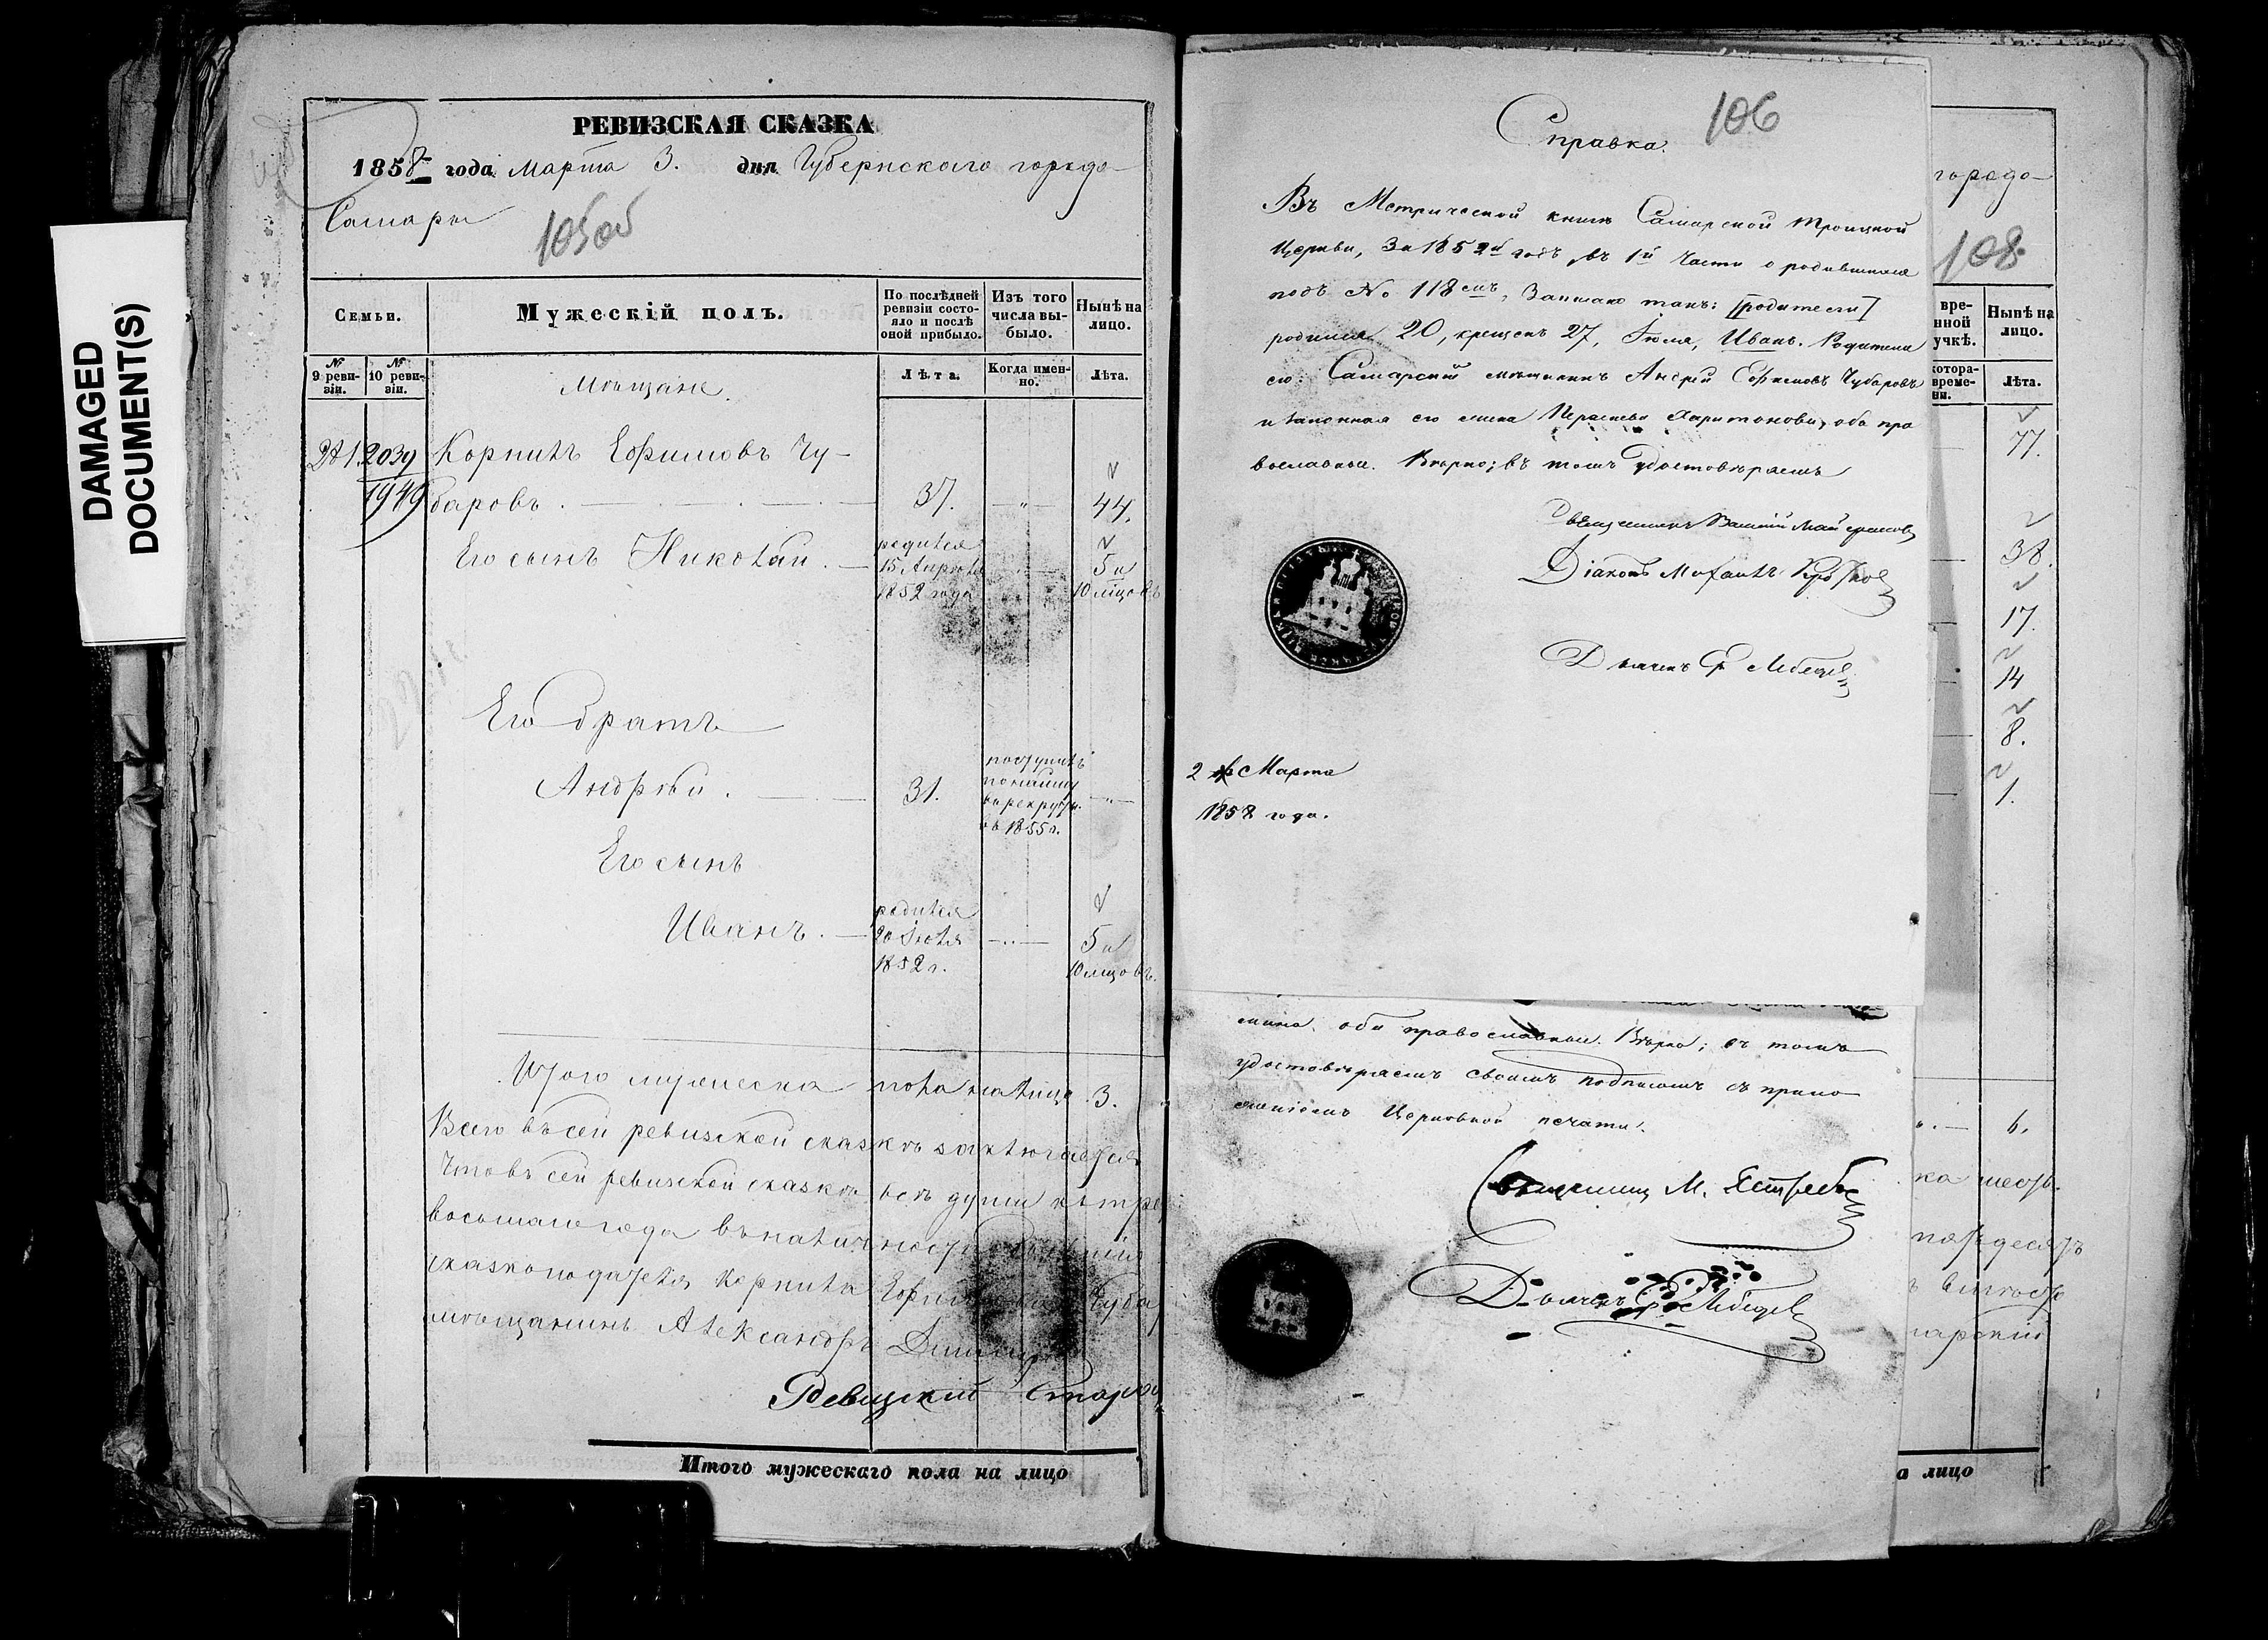 DAMAGED
DOCUMENT(S)
РЕВИЗСКАЯ СКАЗКА
1858 года Марта 3. дня Губернскаго города
Самары
105об
Семьи.
Мужескій полъ.
По послѣдней ревизіи состояло и послѣ оной прибыло.
Изъ того числа выбыло.
Нынѣ на лицо.
№ 9 ревизіи.
№ 10 ревизіи.
Лѣта.
Когда именно.
Лѣта.
Мѣщане.
2039 Корнилъ Ефимовъ Чу-
1949 баровъ. 37. 44.
Его сынъ Николай. родился 15 Апрѣля 1852 года 5 и 10 мцовъ
Его братъ
Андрѣй. 31. поступилъ по найму въ рекруты. въ 1855 г.
Его сынъ
Иванъ. родился 20 Іюля 1852 г. 5 и 10 мцовъ.
Итого мужеска пола на лицо 3.
Всего въ сей ревизской сказкѣ заключается
Что въ сей ревизской сказкѣ всѣ души къ
восьмаго года въ наличности
сказкоподателя Корнила Ефимова Чуба
мѣщанинъ Александръ
Ревизскій Старо
Итого мужескаго пола на лицо
106
Справка.
Въ Метрической книгѣ Самарской Троицкой
Церкви, за 1852й годъ, въ 1й части о родившихся
подъ № 118 емъ, записано такъ: [родители]
родился 20, крещенъ 27, Іюля, Иванъ. Родители
его: Самарскій мѣщанинъ Андрей Ефимовъ Чубаровъ
и законная его жена Параскева Харитонова, оба пра
вославные. Вѣрно; въ томъ удостовѣряемъ
Священникъ Василій
Діаконъ Михаилъ
Дьячекъ Лебедев
2 Марта
1858 года.
оба православные. Вѣрно; въ томъ
удостовѣряемъ своимъ подписомъ съ прило
женіемъ Церковной печати.
Священник М. Ястребов
Дьячекъ Лебедев
города
108
вре-
нной
учкѣ.
Нынѣ на лицо.
котора-
време-
ни.
Лѣта.
77.
38.
17.
14
8.
1.
6.
ка шесть.
пятьдесятъ
а лицо